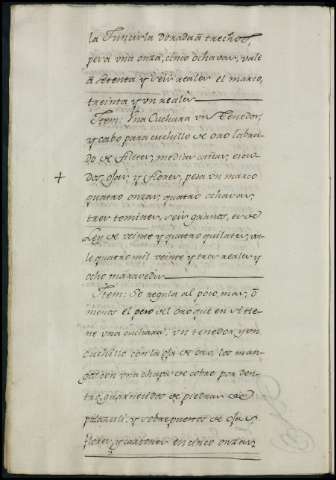 la funcirla dorada a trechos,
pesa una onza, cinco ochavas, vale
a setenta y seis reales el marco,
treinta y un reales
Item: Una Cuchara un Tenedor,
y cabo para cuchillo de oro labra
do de filetes, medias cañas,
y flores, pesa un marco
quatro onzas, quatro ochavas,
tres tomines, seis granos, es de
Ley de veinte y quatro quilates, va
le quatro mil veinte y tres reales y
ocho maravedis
Item: Se regula al poco, mas, ó
menos el peso del oro que en si tie
ne una cuchara, un tenedor, y un
cuchillo con la oja de oro, los man
gos con una chapa de cobre por den
tro, guarnecidos de piedras de
y sobrepuestos de ojas
flores, y cartones en cinco onzas,